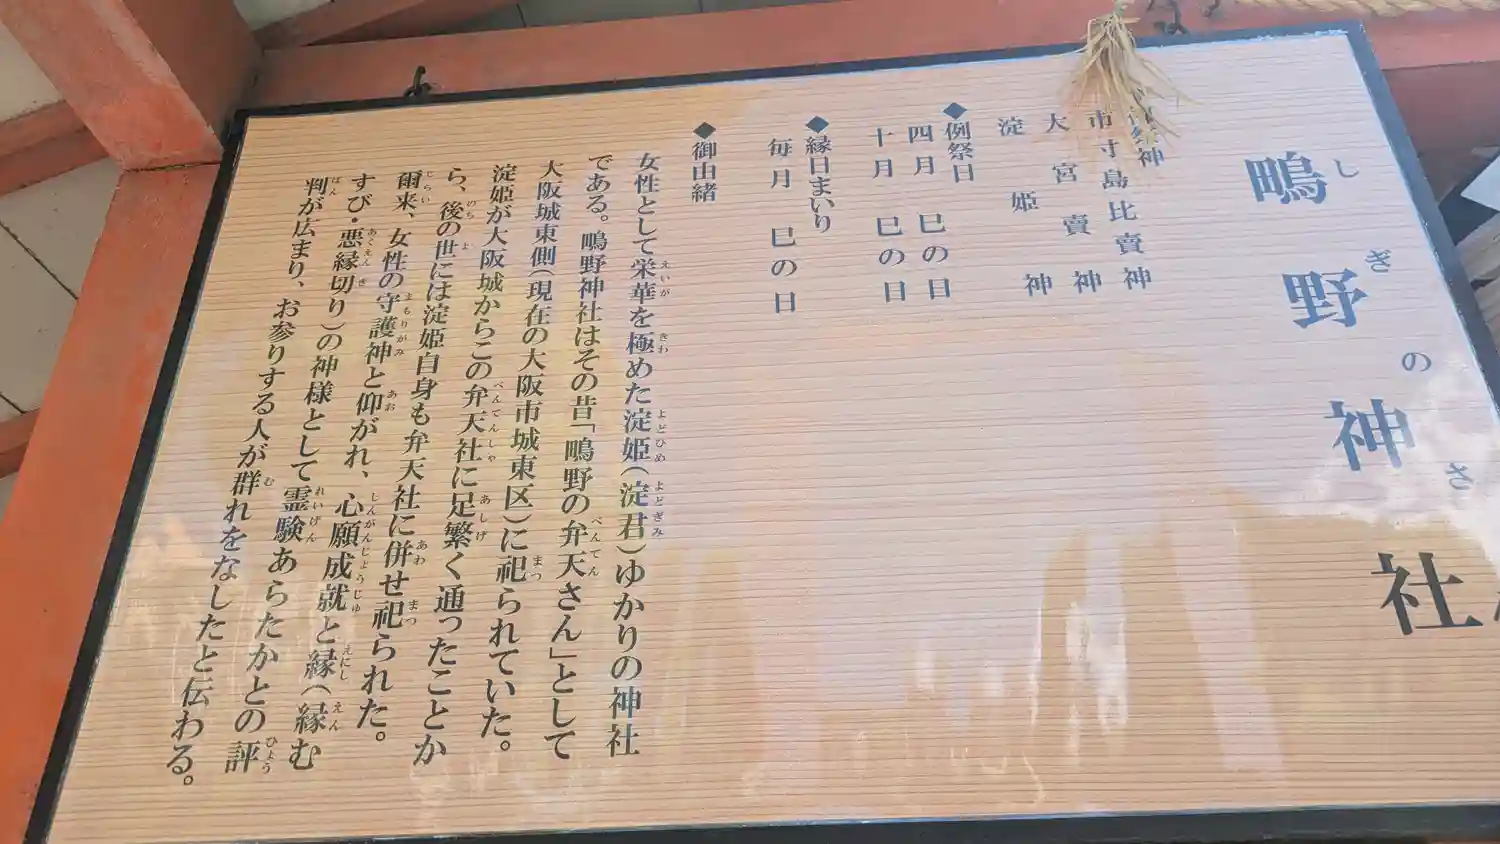 鴫野神社
しぎのさ
神
市寸島比賣神
大宮賣神
淀姫神
◆例祭日
四月 巳の日
十月 巳の日
◆縁日まいり
毎月 巳の日
◆御由緒
女性として栄華を極めた淀姫(淀君)ゆかりの神社
である。鴫野神社はその昔「鴫野の弁天さん」として
大阪城東側(現在の大阪市城東区)に祀られていた。
淀姫が大阪城からこの弁天社に足繁く通ったことか
ら、後の世には淀姫自身も弁天社に併せ祀られた。
爾来、女性の守護神と仰がれ、心願成就と縁(縁む
すび・悪縁切り)の神様として霊験あらたかとの評
判が広まり、お参りする人が群れをなしたと伝わる。